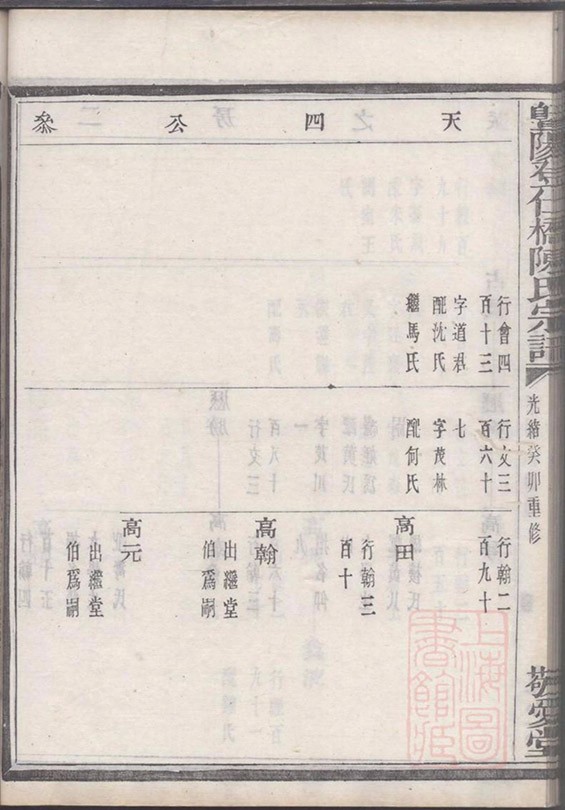 暨陽登仕橋陳氏宗譜
光緒癸卯重修
敬愛堂
天四公叅
行會四
百十三
字道君
配沈氏
繼馬氏
行文三
百六十
七
字茂林
配何氏
行翰二
百九十
高田
行翰三
百十
高翰
出繼堂
伯爲嗣
高元
出繼堂
伯爲嗣
上海圖
書館藏